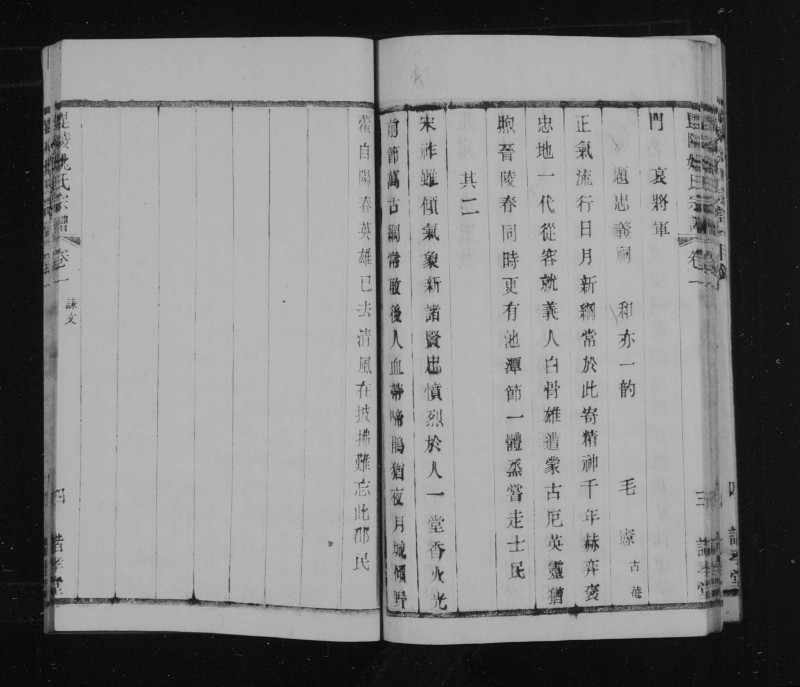 門 哀將軍
題忠義祠 和亦一韵 毛憲古菴
正氣流行日月新綱常於此寄精神千年赫弈褒
忠地一代從容就義人白骨雖遭蒙古厄英靈猶
煦晉陵春同時更有池潭節一體烝嘗走士民
其二
宋祚雖傾氣象新諸賢忠憤烈於人一堂香火光
前節萬古綱常啟後人血蒂啼鵑猶夜月城傾野
藿自陽春英雄已去清風在披拂難忘此郡民
毘陵姚氏宗譜 卷一 詠文 四
毘陵姚氏宗譜 卷一 三